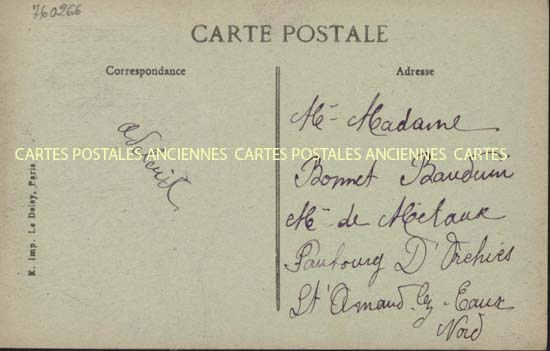 760266
CARTE POSTALE
Correspondance
Adresse
Mr Madame
CARTES POSTALES ANCIENNES CARTES POSTALES ANCIENNES CARTES
Bonnet Bauduin
Md de Métaux
Faubourg D'Orchies
St Amand-lez-Eaux
Nord
E. Imp. Le Deley, Paris